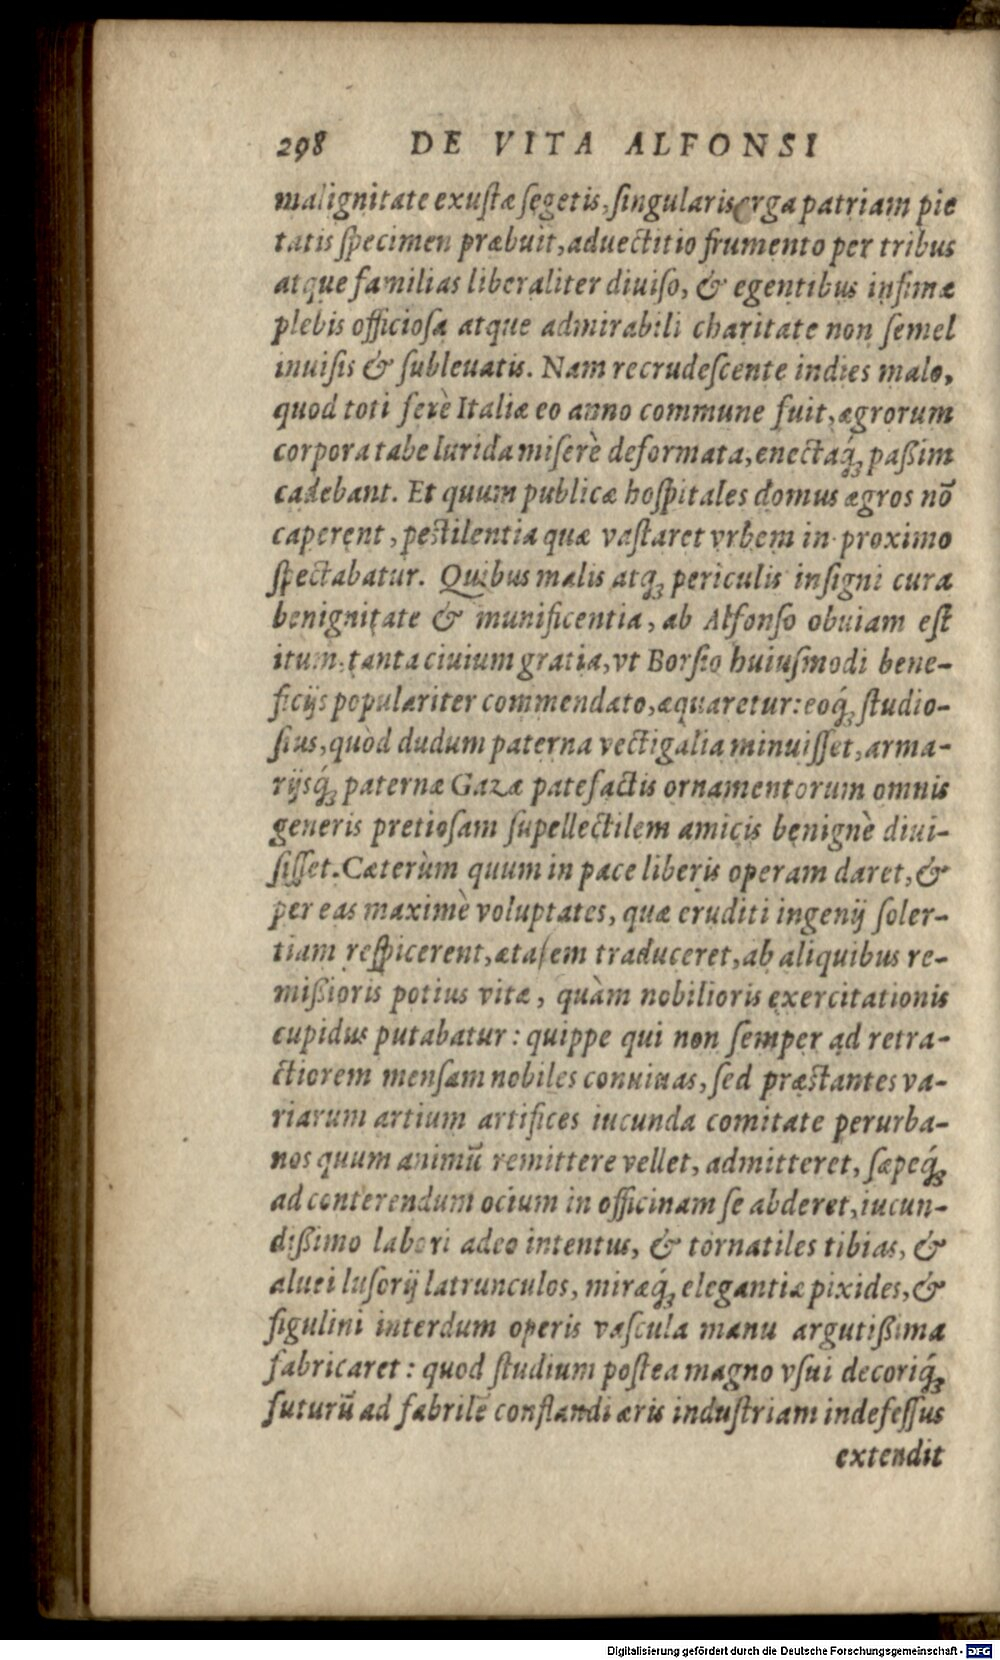 298 DE VITA ALFONSI
malignitate exustæ segetis, singularis erga patriam pie
tatis specimen præbuit, aduectitio frumento per tribus
atque familias liberaliter diuiso, & egentibus infimæ
plebis officiosa atque admirabili charitate non semel
inuisis & subleuatis. Nam recrudescente indies malo,
quod toti ferè Italiæ eo anno commune fuit, ægrorum
corpora tabe lurida miserè deformata, enectaq́; paßim
cadebant. Et quum publicæ hospitales domus ægros nō
caperent, pestilentia quæ vastaret vrbem in proximo
spectabatur. Quibus malis atq; periculis insigni cura
benignitate & munificentia, ab Alfonso obuiam est
itum, tanta ciuium gratia, vt Borsio huiusmodi bene-
ficijs populariter commendato, æquaretur: eoq́; studio-
sius, quòd dudum paterna vectigalia minuisset, arma-
rijsq́; paternæ Gazæ patefactis ornamentorum omnis
generis pretiosam supellectilem amicis benignè diui-
sisset. Cæterùm quum in pace liberis operam daret, &
per eas maximè voluptates, quæ eruditi ingenij soler-
tiam respicerent, ætatem traduceret, ab aliquibus re-
mißioris potius vitæ, quàm nobilioris exercitationis
cupidus putabatur: quippe qui non semper ad retra-
ctiorem mensam nobiles conuiuas, sed præstantes va-
riarum artium artifices iucunda comitate perurba-
nos quum animū remittere vellet, admitteret, sæpeq́;
ad conterendum ocium in officinam se abderet, iucun-
dißimo labori adeo intentus, & tornatiles tibias, &
aluei lusorij latrunculos, miræq́; elegantiæ pixides, &
figulini interdum operis vascula manu argutißima
fabricaret: quod studium postea magno vsui decoriq́;
futurū ad fabrilē conflandi æris industriam indefessus
extendit
Digitalisierung gefördert durch die Deutsche Forschungsgemeinschaft - DFG